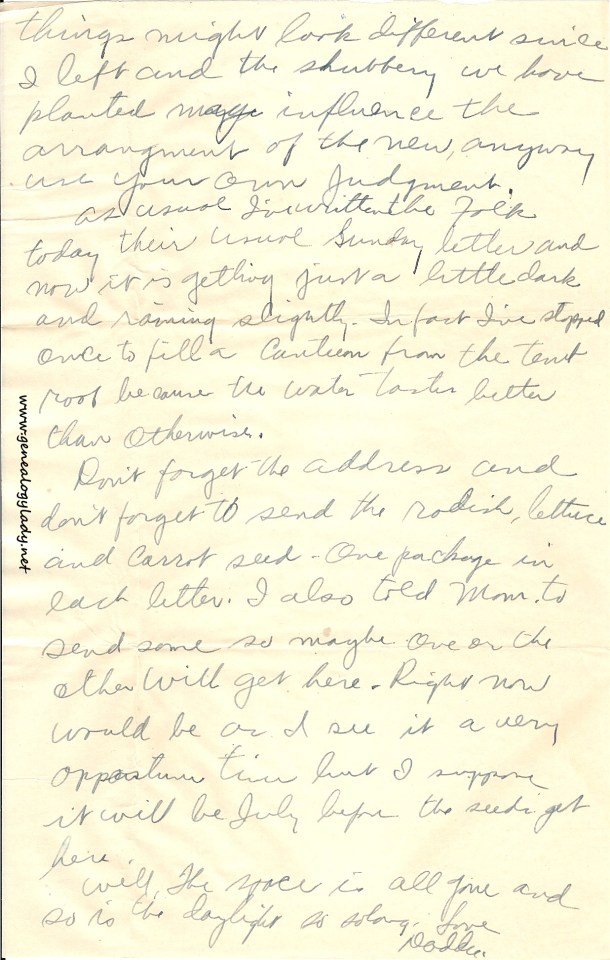 things might look different since
I left and the shubbery we have
planted may influence the
arrangment of the new, anyway
use your own judgment.
As usual I've written the folk
today their usual Sunday letter and
now it is getting just a little dark
and raining slightly. In fact I've stopped
once to fill a canteen from the tent
roof because the water tastes better
than otherwise.
Don't forget the address and
don't forget to send the radish, lettuce
and carrot seed - One package in
each letter. I also told Mom. to
send some so maybe one or the
other will get here. Right now
would be as I see it a very
opportune time but I suppose
it will be July before the seeds get
here.
Well, the space is all gone and
so is the daylight so solong. Love
Daddy.
www.genealogylady.net